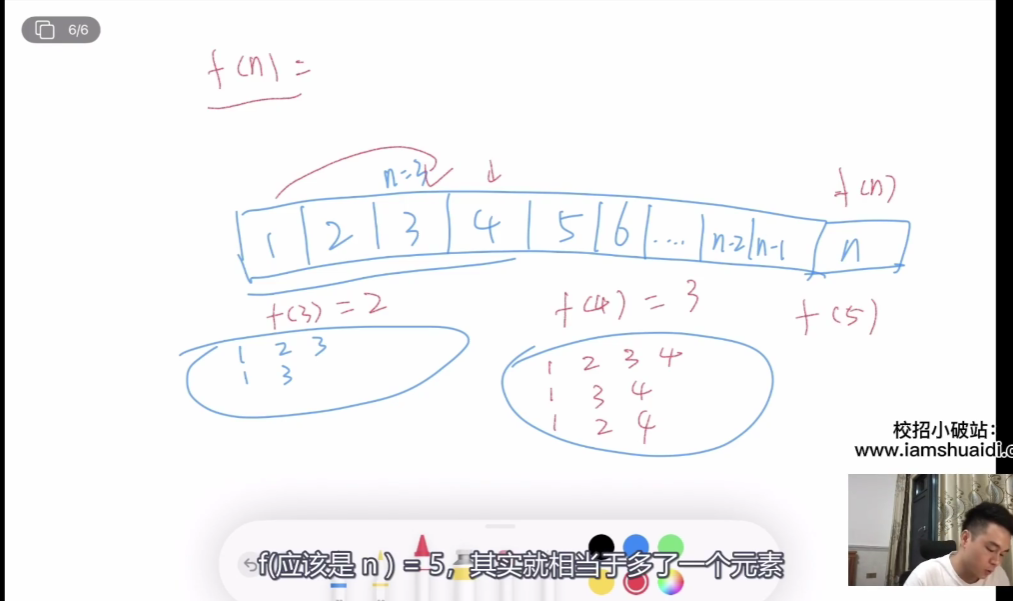 6/6
f(n) =
n=3
↓
f(n)
1 2 3 4 5 6 .... n-2 n-1 n
f(3) = 2
f(4) = 3
f(5)
1 2 3
1 3
1 2 3 4
1 3 4
1 2 4
校招小破站：
www.iamshuaidi.c
f(应该是 n ) = 5，其实就相当于多了一个元素